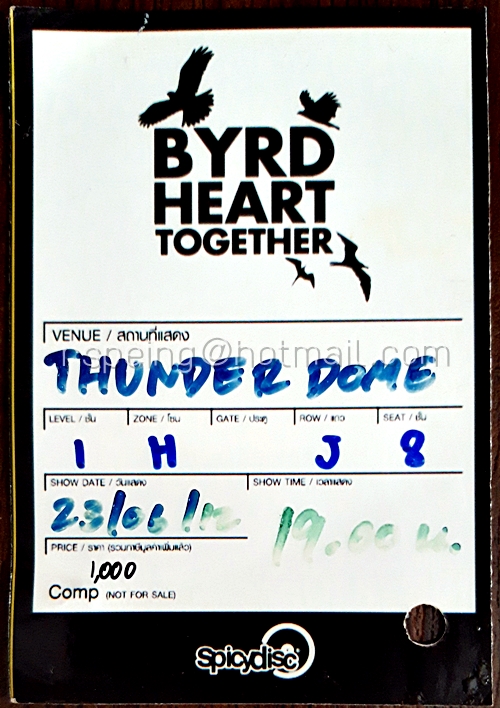 BYRD
HEART
TOGETHER
VENUE / สถานที่แสดง
ngpeing@hotmail.com
THUNDER DOME
LEVEL / ชั้น ZONE / โซน GATE / ประตู ROW / แถว SEAT / ชั้น
1 H J 8
SHOW DATE / วันแสดง SHOW TIME / เวลาแสดง
23/06/12 19.00 น.
PRICE / ราคา (รวมภาษีมูลค่าเพิ่มแล้ว)
1,000
Comp (NOT FOR SALE)
spicydisc